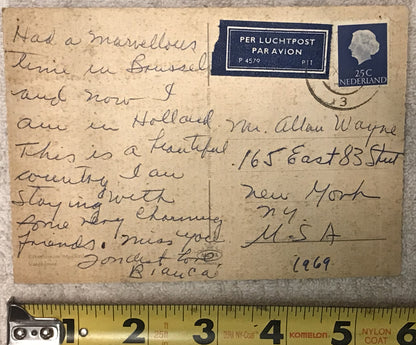 Had a marvellous
time in Brussel
and now I
am in Holland
This is a beautiful
country I am
staying with
some very charming
friends. Miss you
Fondest love
Bianca
PER LUCHTPOST
PAR AVION
P 4579 PTT
25 C
NEDERLAND
3
Mr. Allan Wayne
165 East 83 Street
New York
N.Y.
U.S.A
1969
1 2 3 4 5 6
25ft KOMELON NYLON
COAT